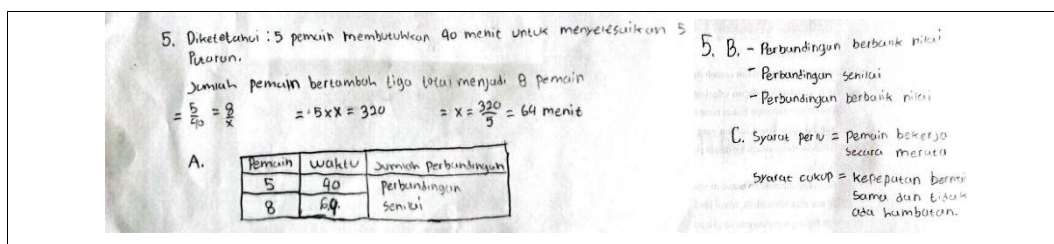 5. Diketahui : 5 pemain membutuhkan 40 menit untuk menyelesaikan 5
Putaran.
Jumlah pemain bertambah tiga total menjadi 8 pemain
= 5/40 = 8/x = 5 x X = 320 = x = 320/5 = 64 menit
A.
Pemain waktu Jumlah perbandingan
5 40 perbandingan
8 64. senilai
5. B. - Perbandingan berbalik nilai
- Perbandingan senilai
- Perbandingan berbalik nilai
C. Syarat perlu = Pemain bekerja
secara merata
Syarat cukup = kecepatan bermain
sama dan tidak
ada hambatan.